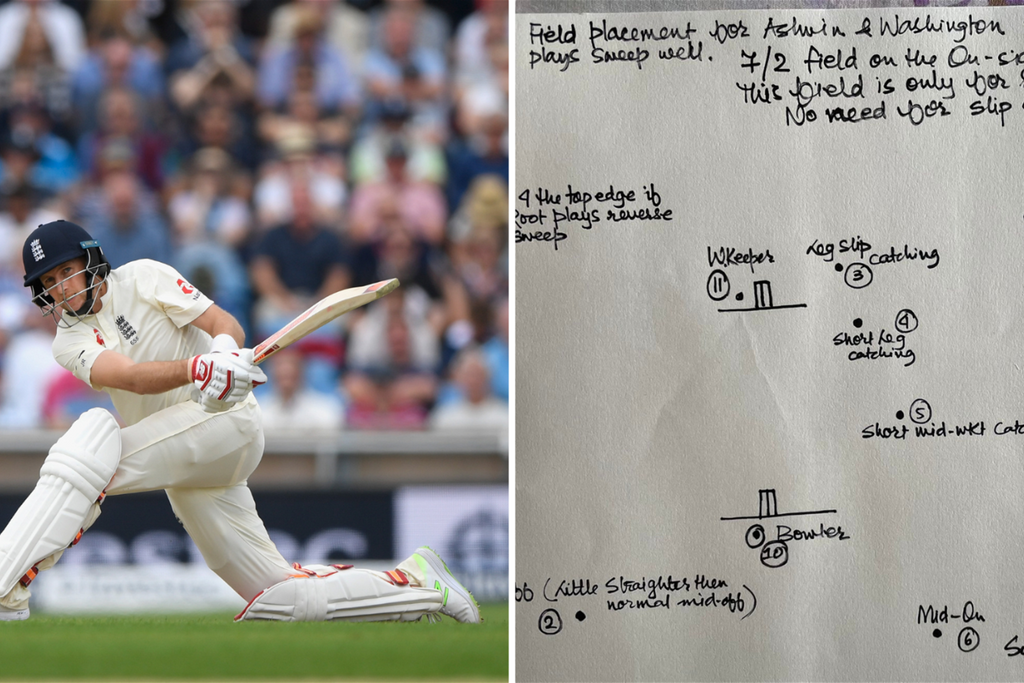 Field placement for Ashwin & Washington
plays sweep well.
7/2 field on the On-si
This field is only for
No need for slip
4 the top edge if
Root plays reverse
sweep
W.Keeper
11
Leg slip
catching
3
4
Short Leg
catching
5
Short mid-wkt Catc
Bowler
10
(Little Straighter then
normal mid-off)
2
Mid-On
6